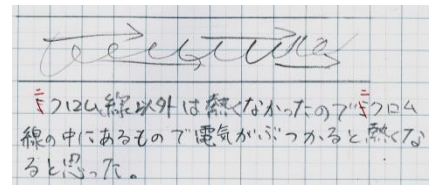 ニクロム線以外は熱くなかったのでニクロム
線の中にあるもので電気がぶつかると熱くな
ると思った。